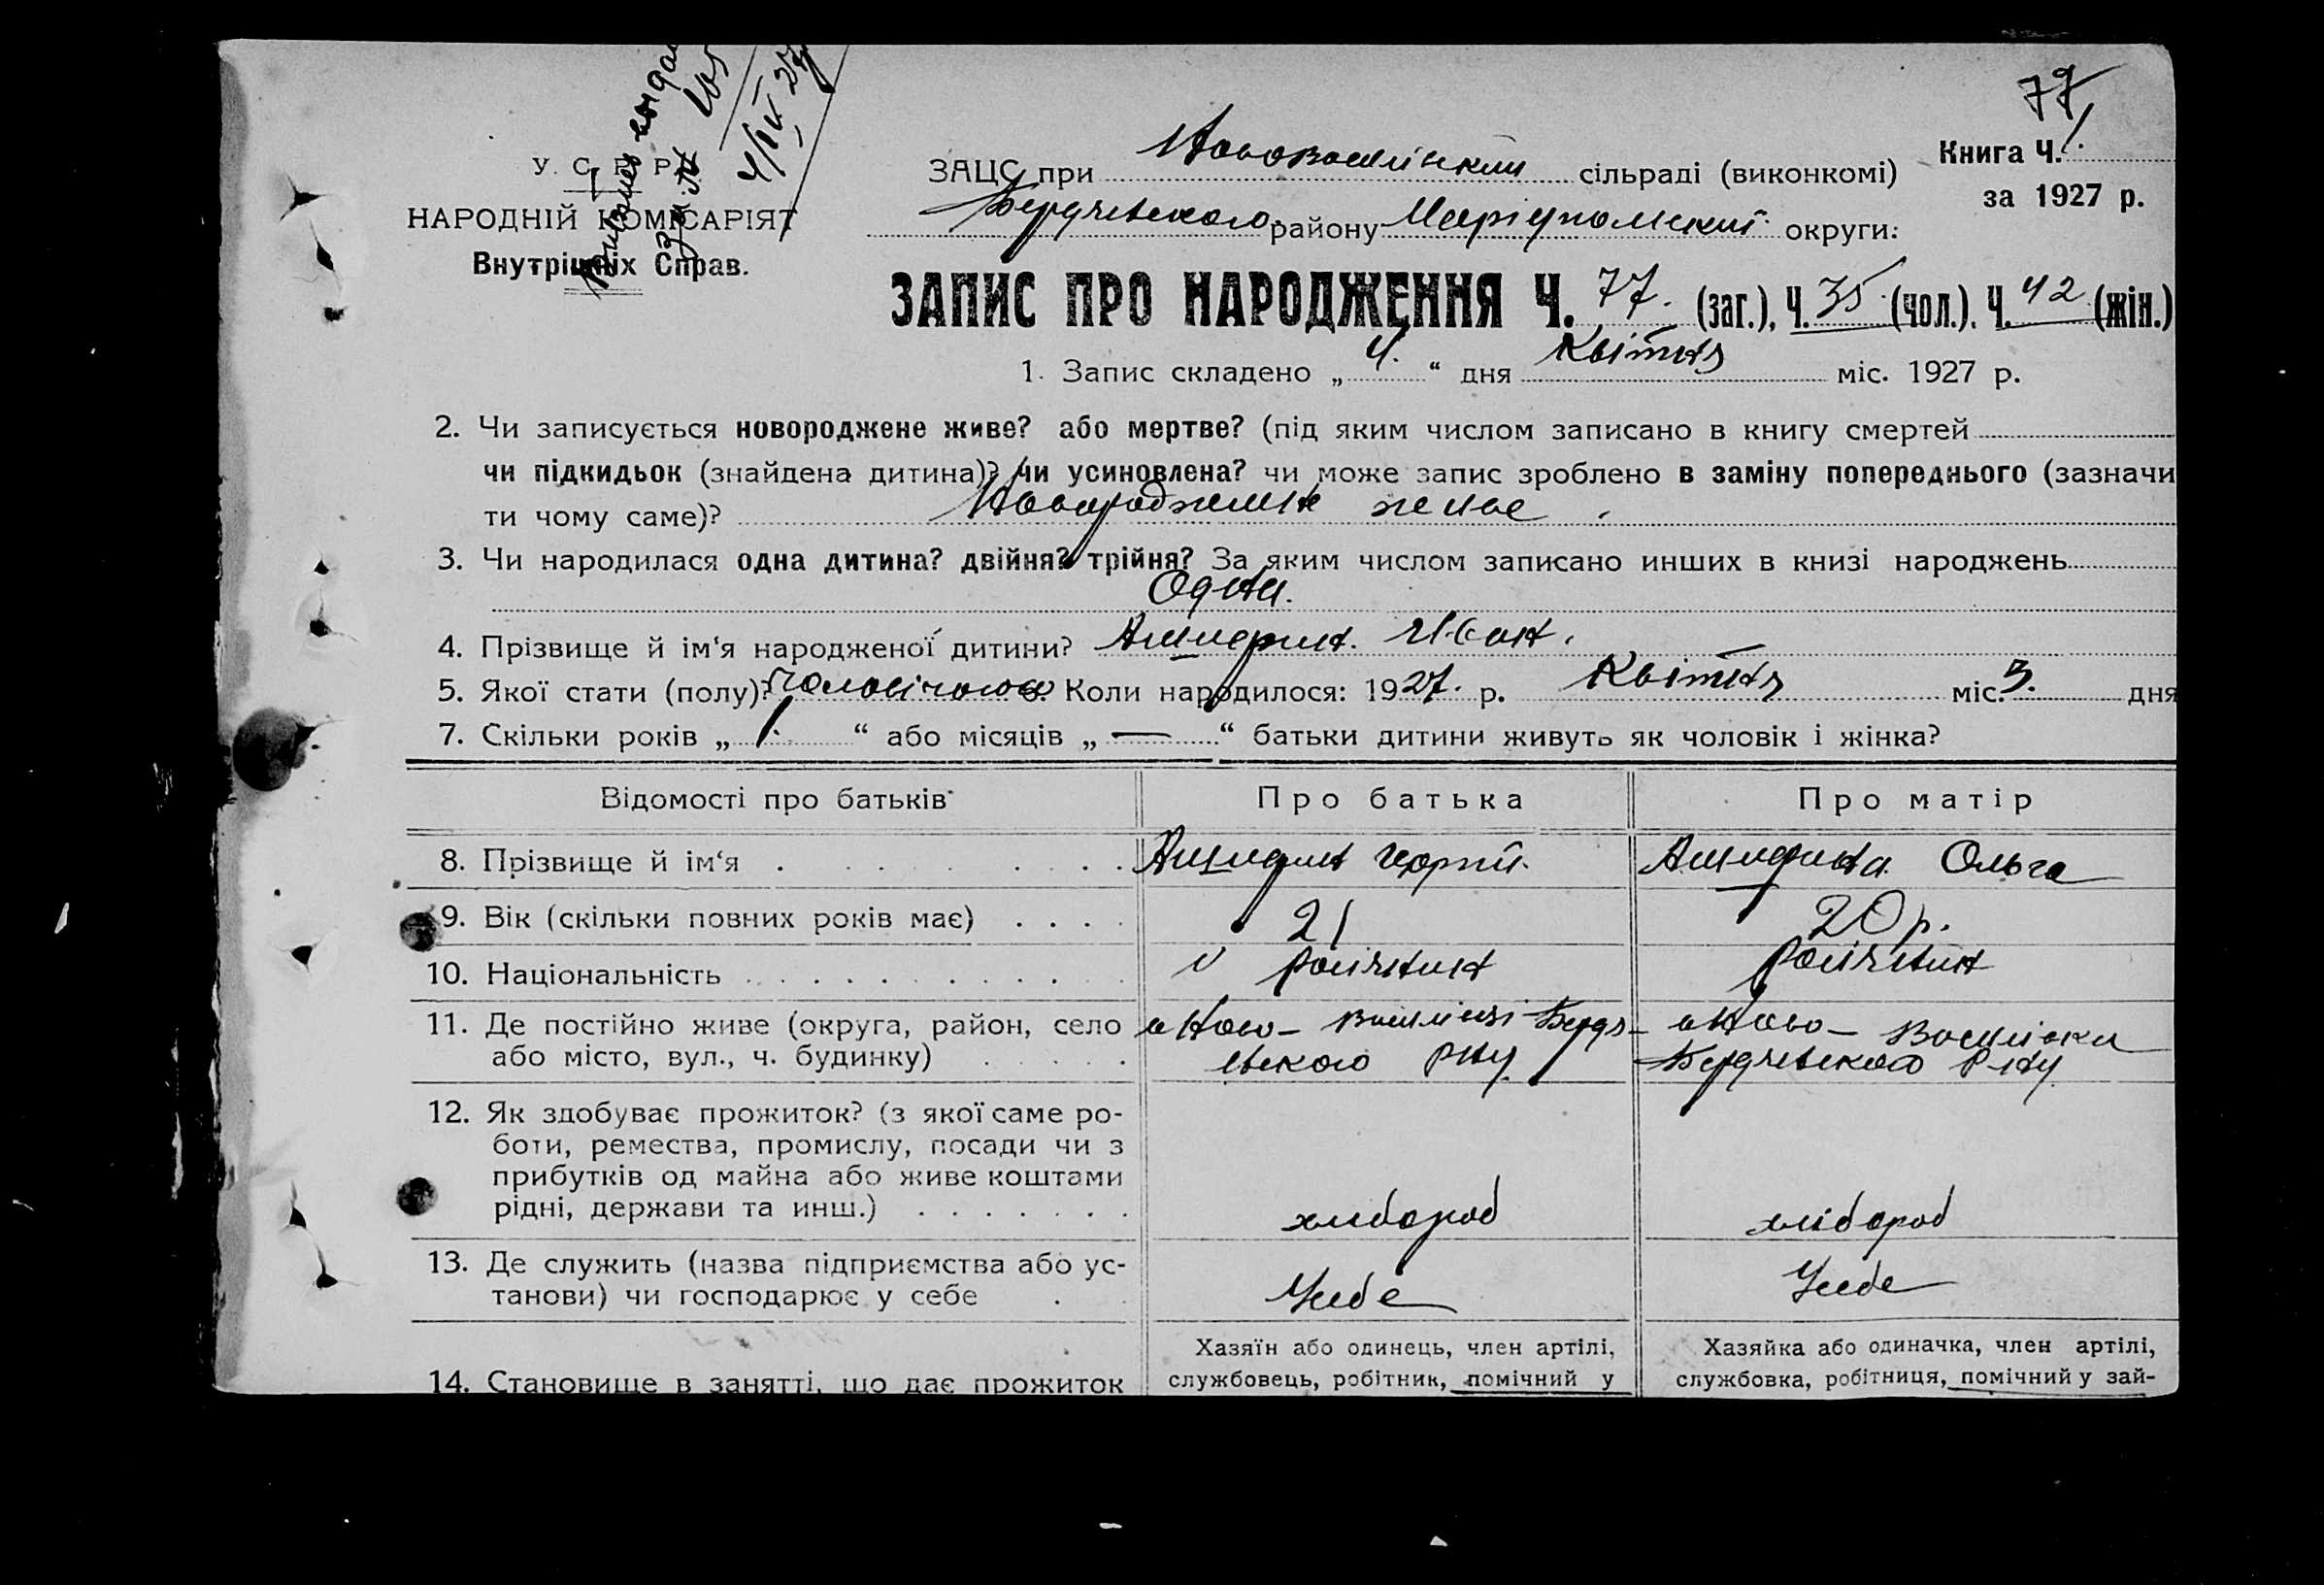 77
У. С. Р. Р.
НАРОДНІЙ КОМІСАРІЯТ
Внутрішніх Справ.
105
4/IV 27
ЗАЦС при сільраді (виконкомі)
району округи.
Книга Ч. 1.
за 1927 р.
ЗАПИС ПРО НАРОДЖЕННЯ Ч. 77. (заг.), Ч. 35 (чол.), Ч. 42 (жін.)
1. Запис складено „ 4. “ дня Квітня міс. 1927 р.
2. Чи записується новороджене живе? або мертве? (під яким числом записано в книгу смертей
чи підкидьок (знайдена дитина)? чи усиновлена? чи може запис зроблено в заміну попереднього (зазначи
ти чому саме)? живе
3. Чи народилася одна дитина? двійня? трійня? За яким числом записано инших в книзі народжень
Одна.
4. Прізвище й ім‘я народженої дитини? Іван.
5. Якої стати (полу)? 6. Коли народилося: 1927. р. Квітня міс. 3. дня
7. Скільки років „ 1. “ або місяців „ — “ батьки дитини живуть як чоловік і жінка?
Відомості про батьків Про батька Про матір
8. Прізвище й ім‘я Ольга
9. Вік (скільки повних років має) 21 20 р.
10. Національність
11. Де постійно живе (округа, район, село
або місто, вул., ч. будинку)
12. Як здобуває прожиток? (з якої саме ро-
боти, ремества, промислу, посади чи з
прибутків од майна або живе коштами
рідні, держави та инш.) хлібороб хлібороб
13. Де служить (назва підприємства або ус-
танови) чи господарює у себе У себе У себе
14. Становище в занятті, що дає прожиток
Хазяїн або одинець, член артілі,
службовець, робітник, помічний у
Хазяйка або одиначка, член артілі,
службовка, робітниця, помічний у зай-